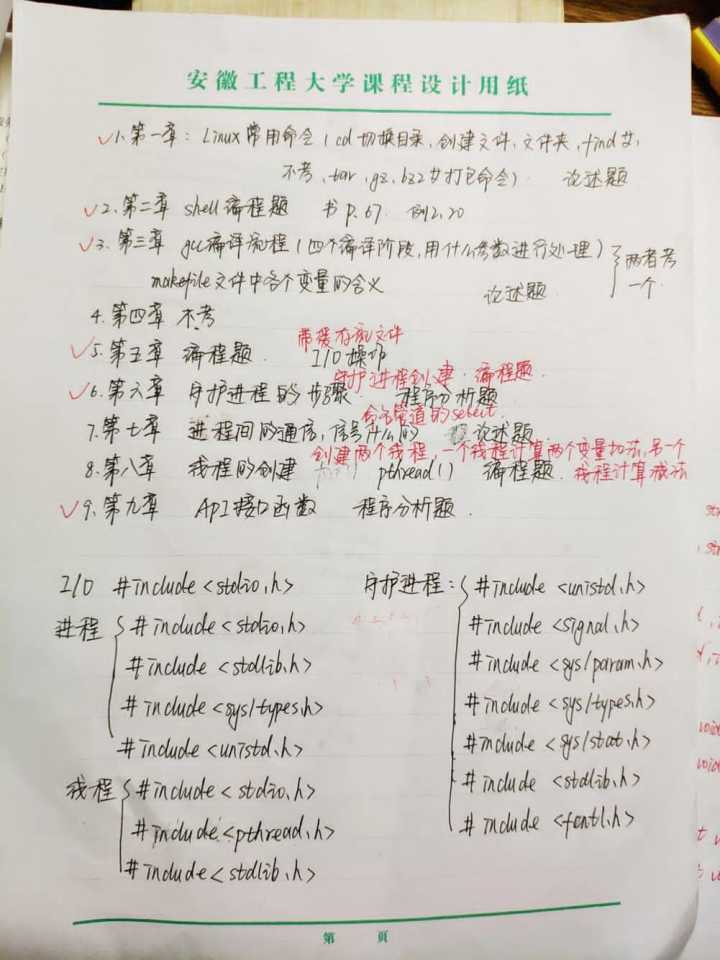 安徽工程大学课程设计用纸
√1.第一章：Linux常用命令（cd切换目录，创建文件，文件夹，find女，
不考，tar，gz，bz2女打包命令） 论述题
√2.第二章 shell编程题 书P.67. 例2.20
√3.第三章 gcc编译流程（四个编译阶段，用什么参数进行处理） 两者考
makefile文件中各个变量的含义 论述题 一个.
4.第四章 不考
带缓存流文件
√5.第五章 编程题. I/O操作
守护进程创建. 编程题.
√6.第六章 守护进程的步骤. 程序分析题.
命名管道的select.
7.第七章 进程间的通信，信号什么的 论述题.
创建两个线程，一个线程计算两个变量加法，另一个
8.第八章 线程的创建 pthread() 编程题. 线程计算减法
√9.第九章 API接口函数 程序分析题.
I/O #include <stdio.h>
进程 #include <stdio.h>
#include <stdlib.h>
#include <sys/types.h>
#include <unistd.h>
线程 #include <stdio.h>
#include <pthread.h>
#include <stdlib.h>
守护进程： #include <unistd.h>
#include <signal.h>
#include <sys/param.h>
#include <sys/types.h>
#include <sys/stat.h>
#include <stdlib.h>
#include <fcntl.h>
第 页